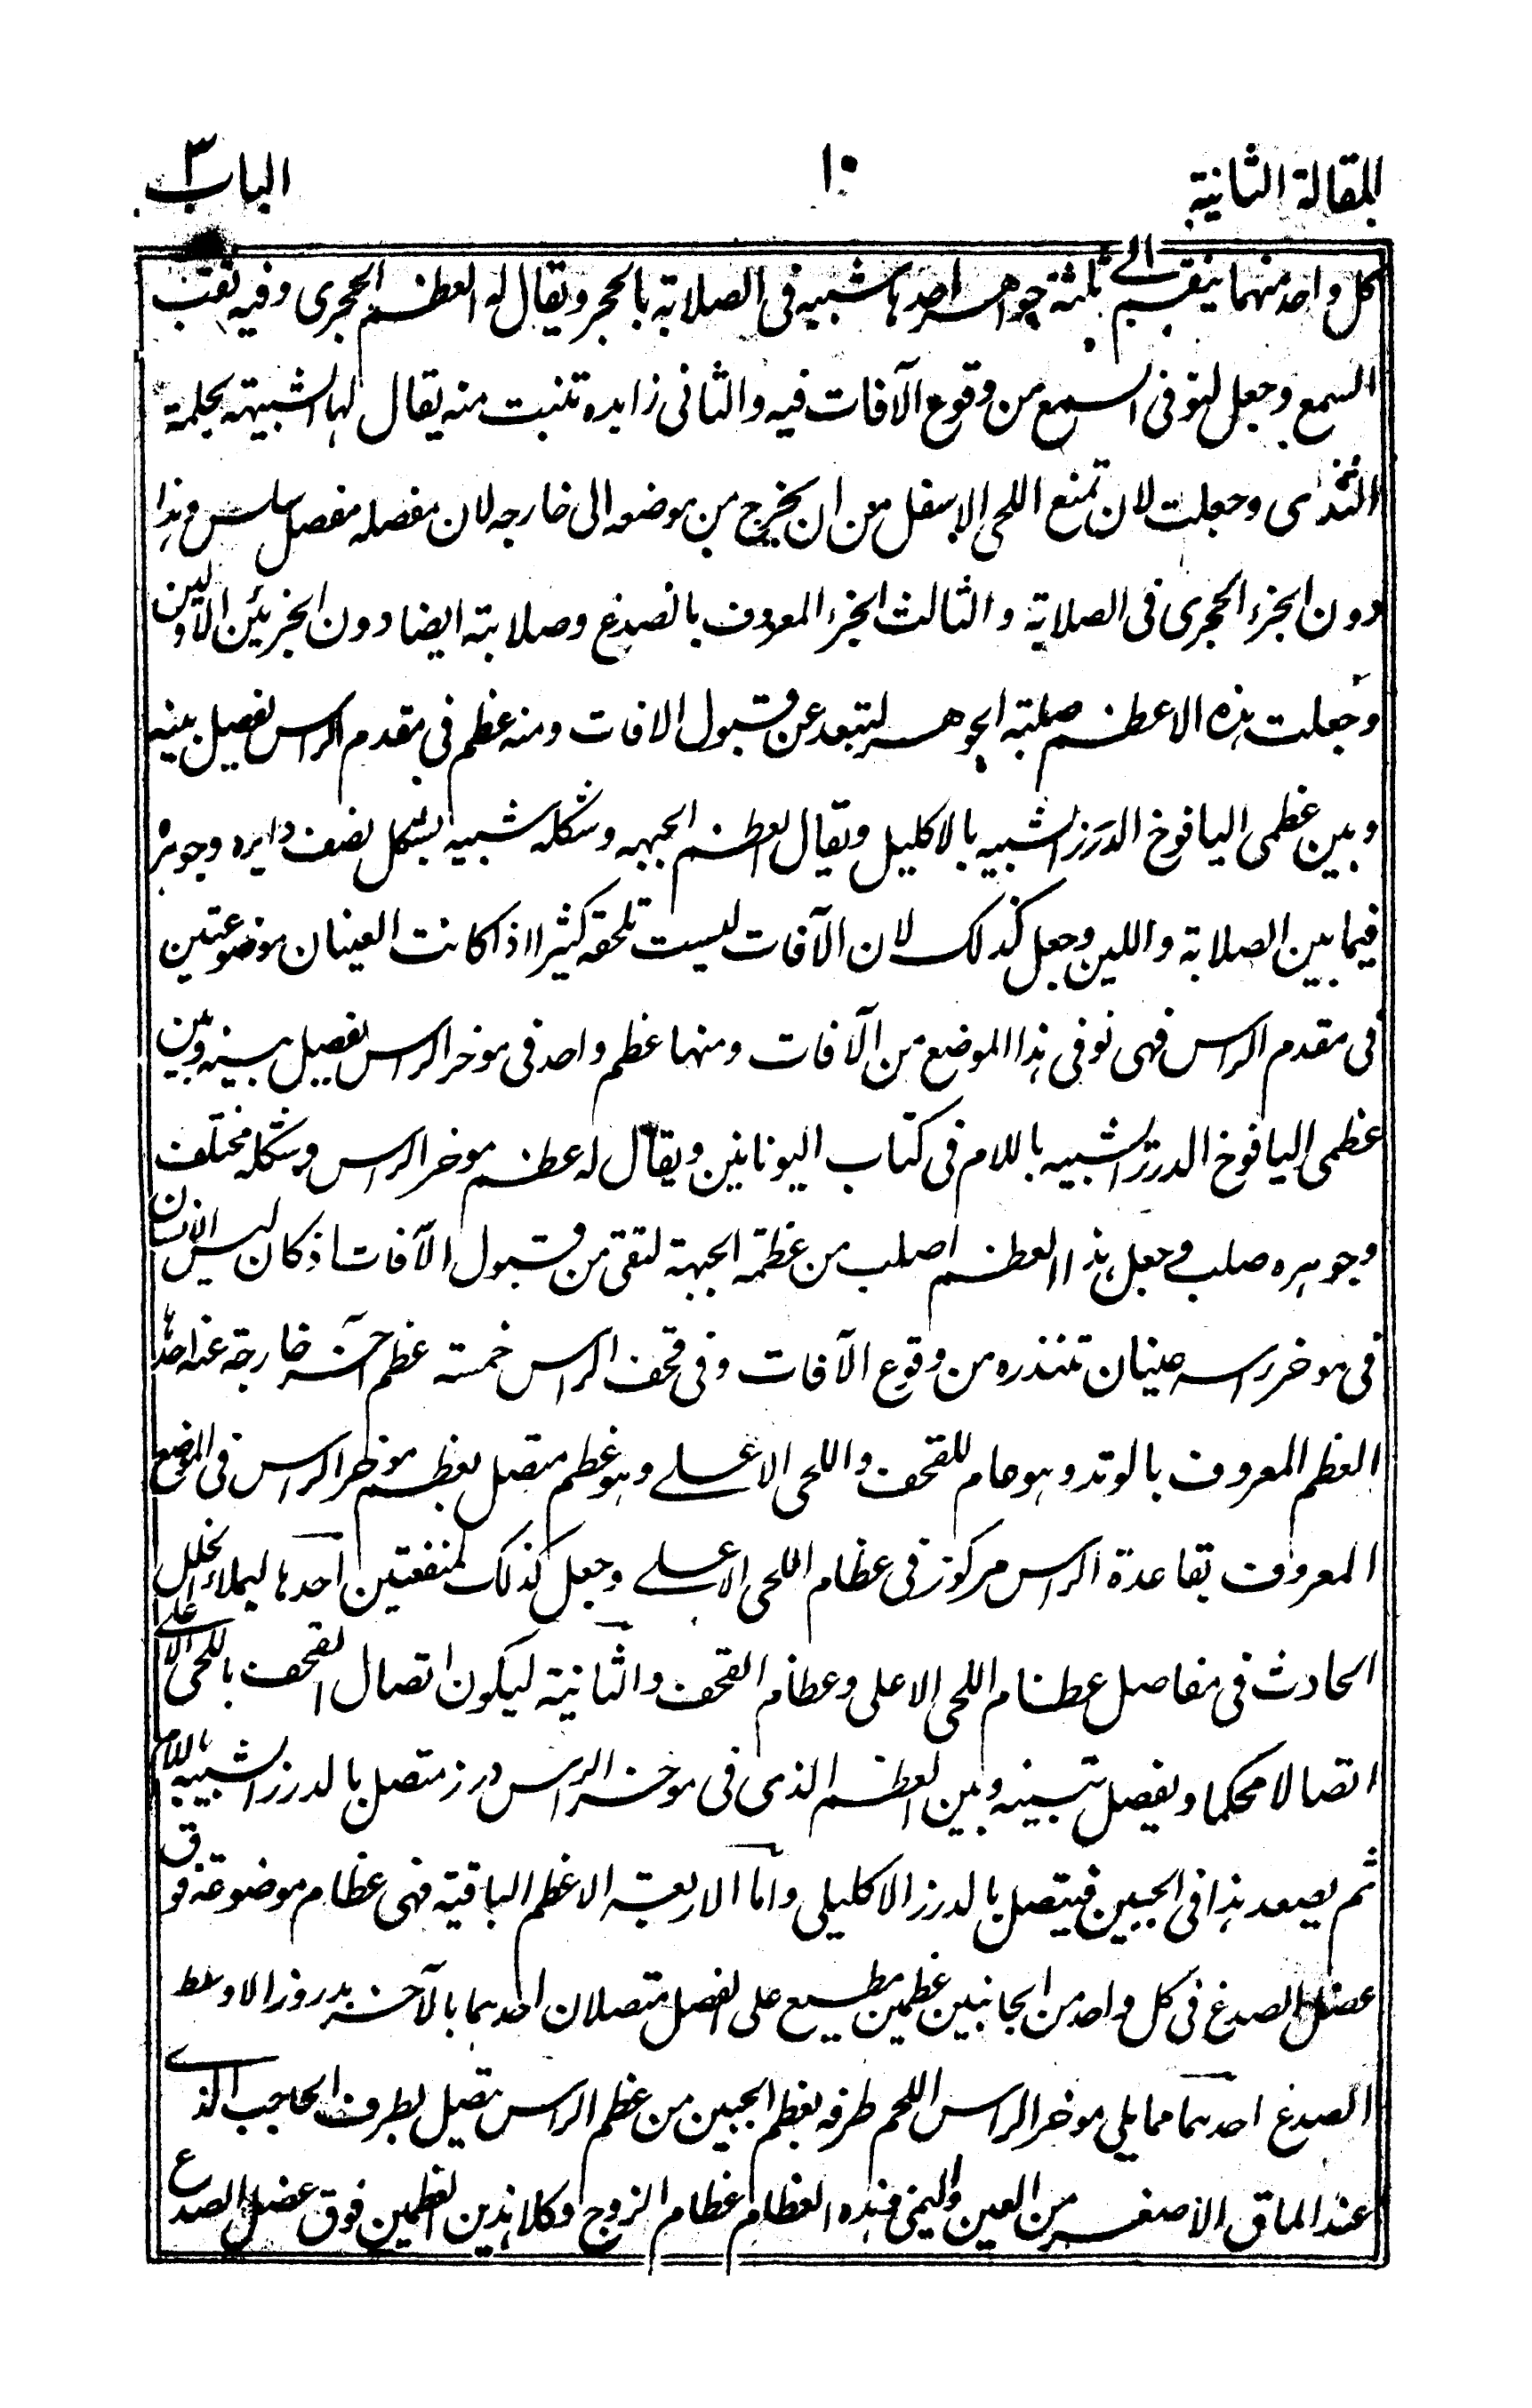 المقالة الثانية ١٠ الباب ٣
كل واحد منهما ينقسم الى ثلثة جواهر احدها شبيه فى الصلابة بالحجر ويقال له العظم الحجرى وفيه ثقب
السمع وجعل لتوفى السمع من وقوع الآفات فيه والثانى زايده تنبت منه يقال لها الشبيهه بحلمة
الثدى وجعلت لان تمنع اللحى الاسفل من ان يخرج من موضعه الى خارجه لان مفصله مفصل سلس وهذا
دون الجزء الحجرى فى الصلابة والثالث الجزء المعروف بالصدغ وصلابته ايضا دون الجزئين الاولين
وجعلت هذه الاعظم صلبته الجوهر لتبعد عن قبول الافات ومنه عظم فى مقدم الراس يفصل بينه
وبين عظمى اليافوخ الدرز الشبيه بالاكليل ويقال العظم الجبهه وشكله شبيه بشكل نصف دايره وجوهره
فيما بين الصلابة واللين وجعل كذلك لان الآفات ليست تلحقه كثيرا اذا كانت العينان موضوعتين
فى مقدم الراس فهى توفى هذا الموضع من الآفات ومنها عظم واحد فى موخر الراس يفصل بينه وبين
عظمى اليافوخ الدرز الشبيه باللام فى كتاب اليونانين ويقال له عظم موخر الراس وشكله مختلف
وجوهره صلب وجعل هذا العظم اصلب من عظمة الجبهة لتقى من قبول الآفات اذ كان ليس الانسان
فى موخر راسه عينان تنذره من وقوع الآفات وفى قحف الراس خمسته عظم آخر خارجة عنه احدها
العظم المعروف بالوتد وهو عام للقحف واللحى الاعلى وهو عظم متصل بعظم موخر الراس فى الموضع
المعروف بقاعدة الراس مركوز فى عظام اللحى الاعلى وجعل كذلك لمنفعتين احدها ليملاء الخلل
الحادث فى مفاصل عظام اللحى الاعلى وعظام القحف والثانية ليكون اتصال القحف باللحى الاعلى
اتصالا محكما ويفصل بينه وبين العظم الذى فى موخر الراس درز متصل بالدرز الشبيه باللام
ثم يصعد هذا فى الجبين فيتصل بالدرز الاكليلى واما الاربعة الاعظم الباقية فهى عظام موضوعة فوق
عضل الصدغ فى كل واحد من الجانبين عظمين على الفصل متصلان احدهما بالآخر بدروز الاوسط
الصدغ احدهما مما يلى موخر الراس اللحم طرفه بعظم الجبين من عظم الراس متصل بطرف الحاجب الذى
عند الماق الاصغر من العين واليمنى فهذه العظام عظام الزوج وكلا هذين العظمين فوق عضل الصدغ